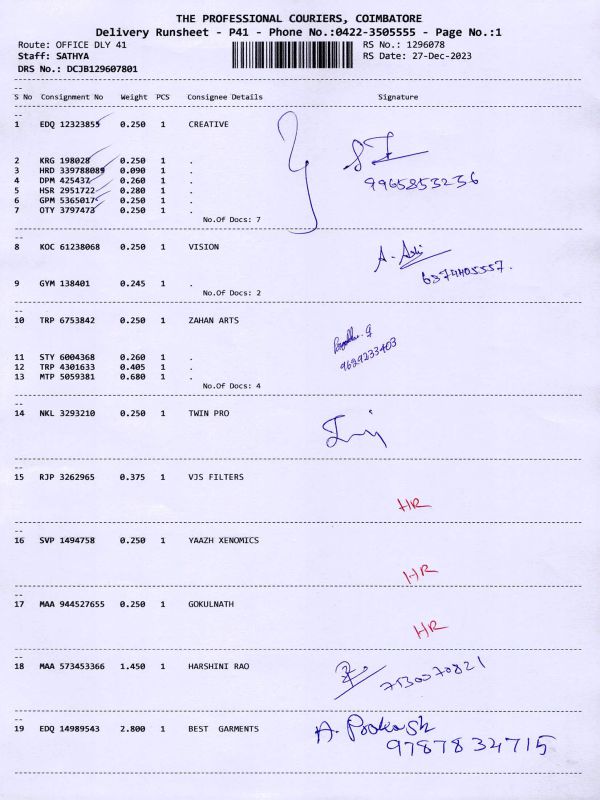 THE PROFESSIONAL COURIERS, COIMBATORE
Delivery Runsheet - P41 - Phone No.:0422-3505555 - Page No.:1
Route: OFFICE DLY 41 RS No.: 1296078
Staff: SATHYA RS Date: 27-Dec-2023
DRS No.: DCJB129607801
S No Consignment No Weight PCS Consignee Details Signature
1 EDQ 12323855 0.250 1 CREATIVE
2 KRG 198028 0.250 1 .
3 HRD 339788089 0.090 1 .
9965853236
4 DPM 425437 0.260 1 .
5 HSR 2951722 0.280 1 .
6 GPM 5365017 0.250 1 .
7 OTY 3797473 0.250 1 .
No.Of Docs: 7
8 KOC 61238068 0.250 1 VISION
6374405557.
9 GYM 138401 0.245 1 .
No.Of Docs: 2
10 TRP 6753842 0.250 1 ZAHAN ARTS
9629233403
11 STY 6004368 0.260 1 .
12 TRP 4301633 0.405 1 .
13 MTP 5059381 0.680 1 .
No.Of Docs: 4
14 NKL 3293210 0.250 1 TWIN PRO
15 RJP 3262965 0.375 1 VJS FILTERS
HR
16 SVP 1494758 0.250 1 YAAZH XENOMICS
HR
17 MAA 944527655 0.250 1 GOKULNATH
HR
18 MAA 573453366 1.450 1 HARSHINI RAO
7530070821
19 EDQ 14989543 2.800 1 BEST GARMENTS
A. Prakash
9787834715